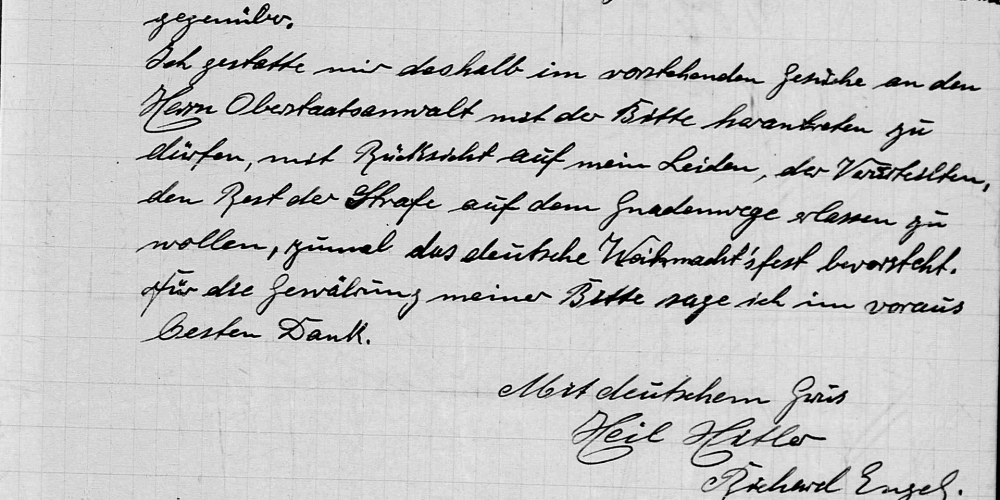 gegenüber.
Ich gestatte mir deshalb im vorstehenden Gesuche an den
Herrn Oberstaatsanwalt mit der Bitte herantreten zu
dürfen, mit Rücksicht auf mein Leiden, der Verurteilten,
den Rest der Strafe auf dem Gnadenwege erlassen zu
wollen, zumal das deutsche Weihnacht'sfest bevorsteht.
Für die Gewährung meiner Bitte sage ich im voraus
besten Dank.
Mit deutschem Grus
Heil Hitler
Richard Engel.